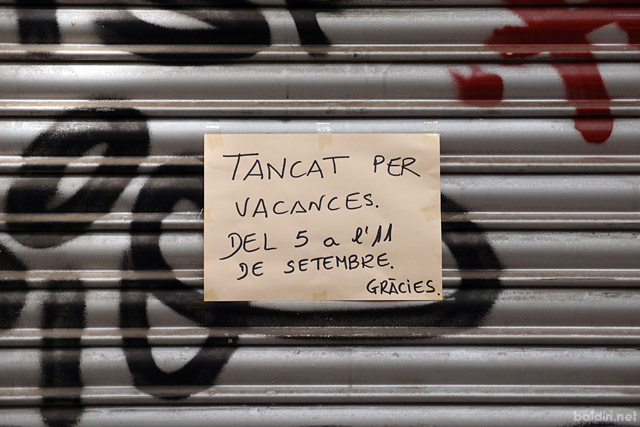 TANCAT PER
VACANCES.
DEL 5 a l'11
DE SETEMBRE.
GRÀCIES.
baldiri.net